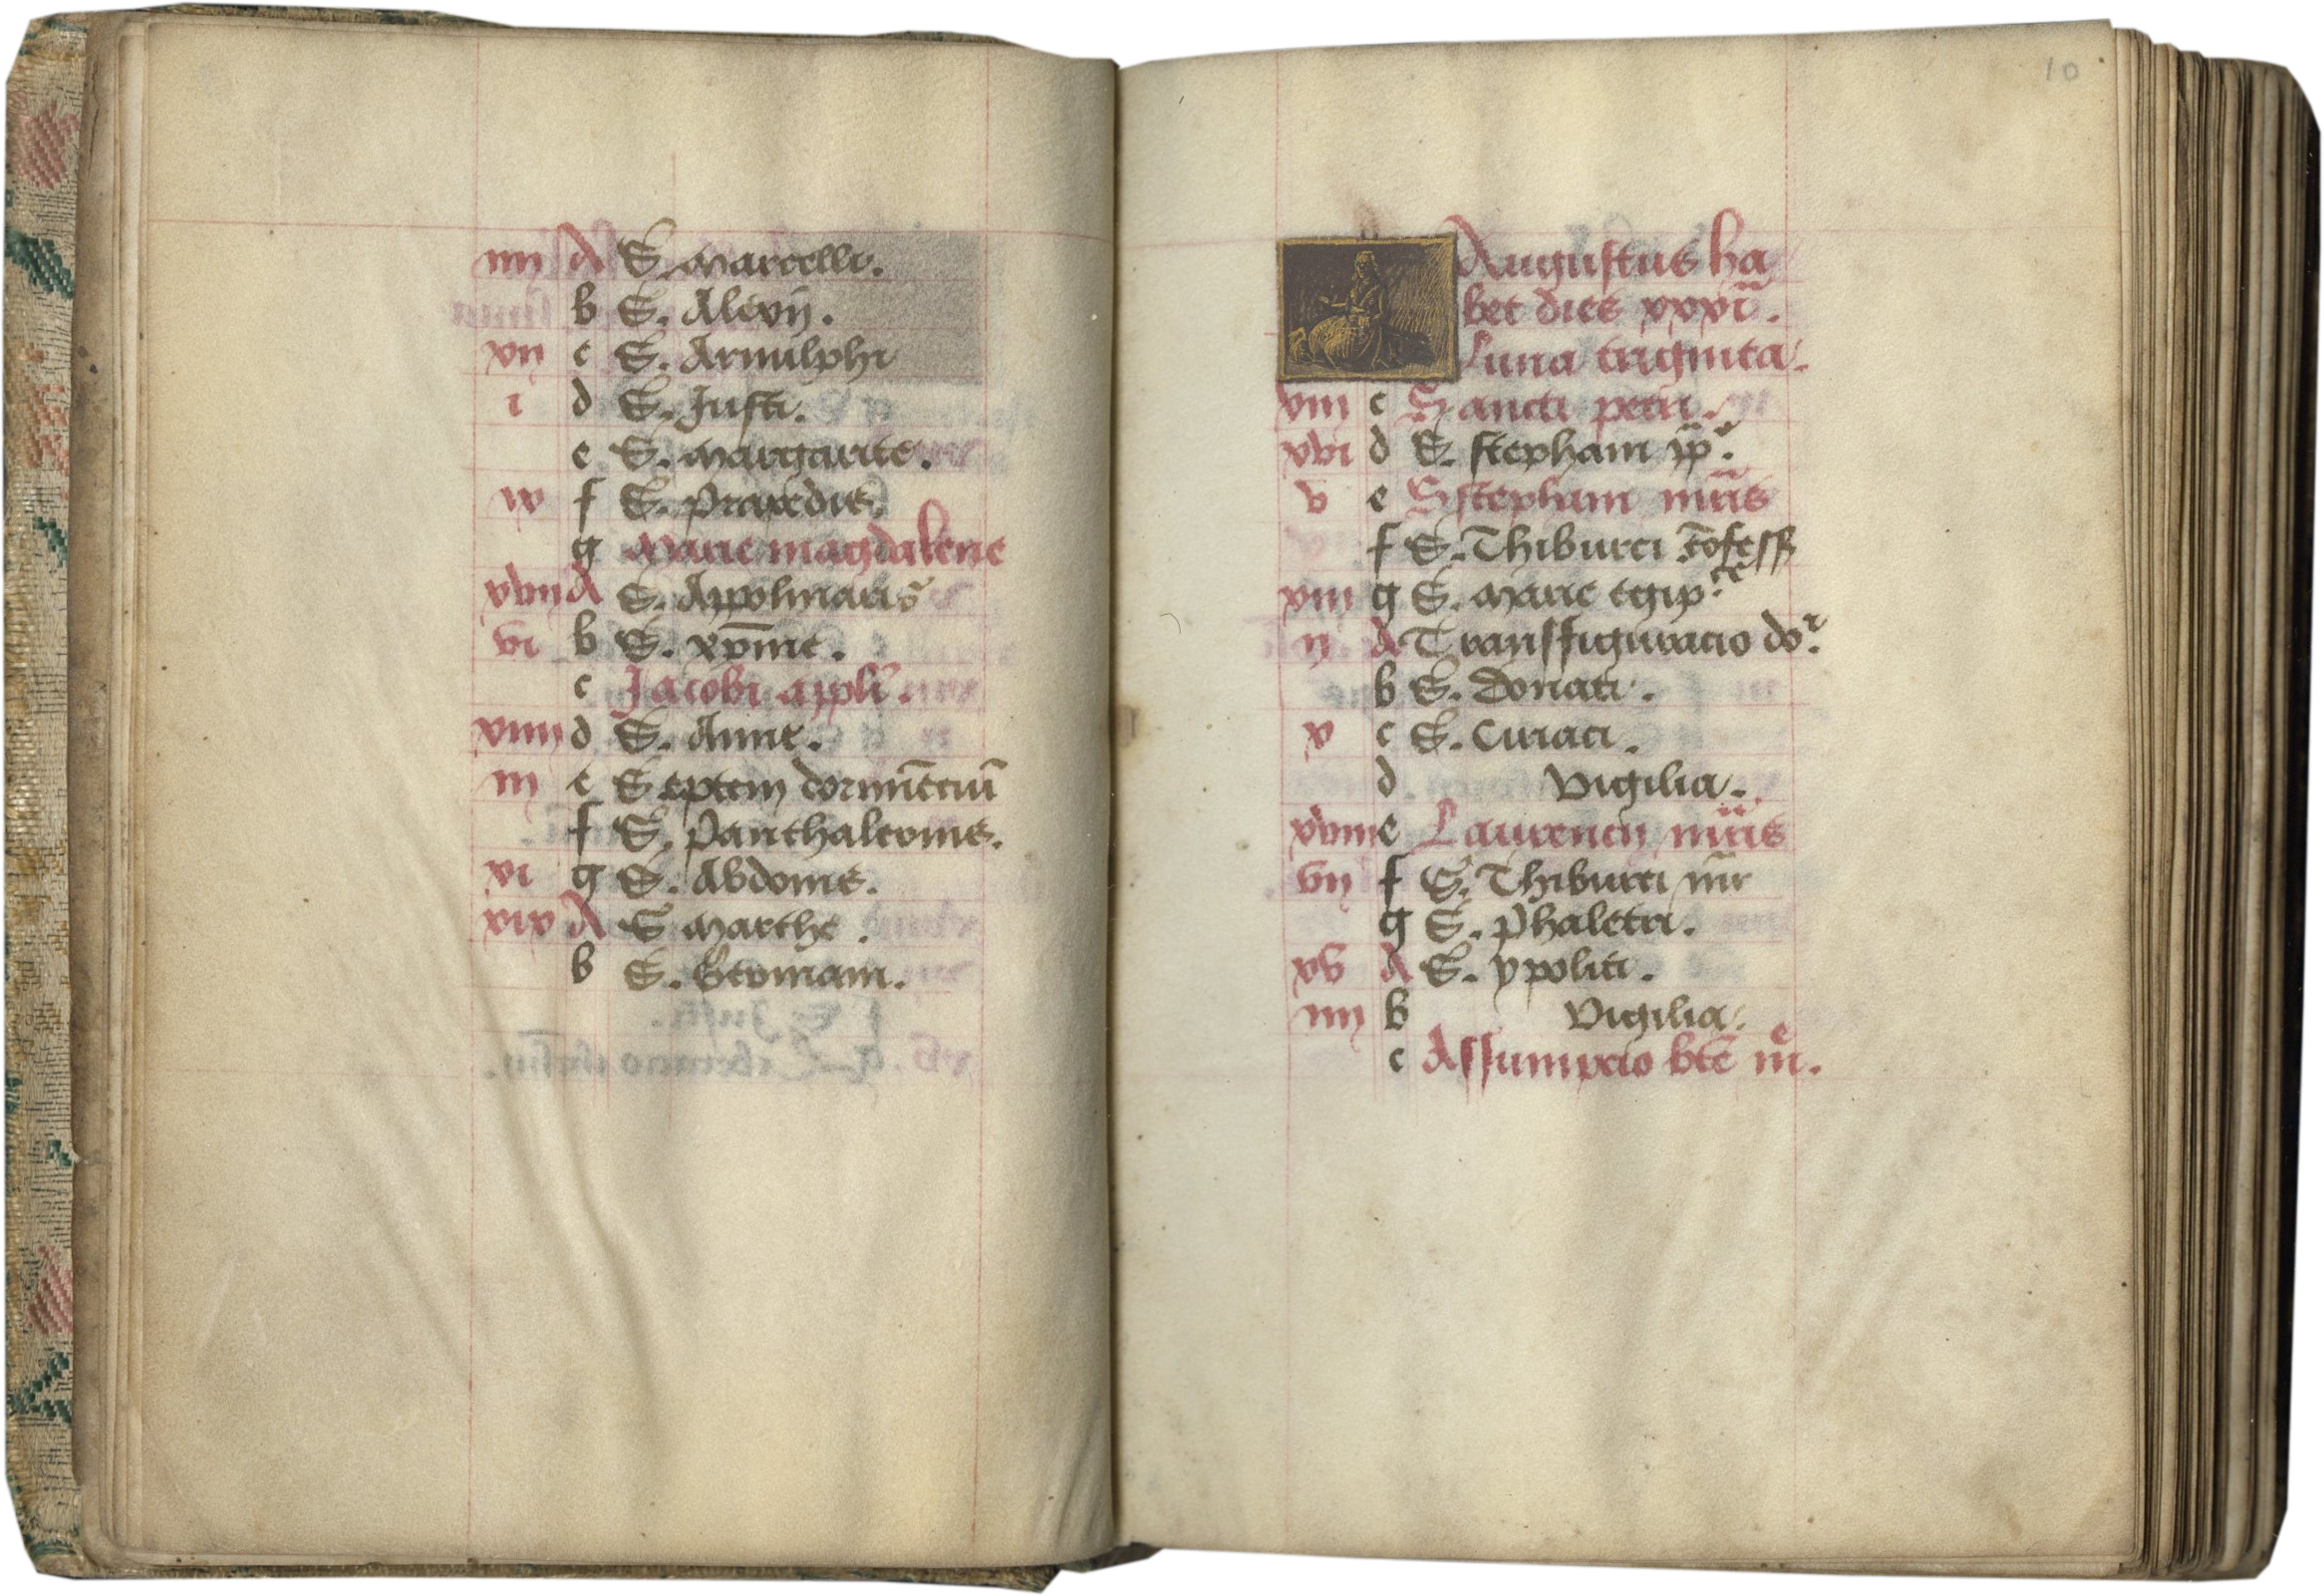 iiij A S. Marcelli.
b S. Alexij.
xij c S. Arnulphi
i d S. Justi.
e S. Margarite.
ix f S. Praxedis.
g Marie magdalene
xvij A S. Appolinaris
vi b S. xp̄ine.
c Jacobi appli.
xiiij d S. Anne.
iij e Septem dormiēciū
f S. Panthaleonis.
xi g S. Abdonis.
xix A S Marthe.
b S. Germani.
10
Augustus ha
bet dies xxxi.
Luna triginta.
viij c Sancti petri.
xvi d S. stephani pp̄.
v e S stephani mr̄is
f S. Thiburci cōfess
xiij g S. Marie egip.ce
ij A Transfiguracio do.i
b S. Donati.
x c S. Ciriaci.
d Vigilia.
xviij e Laurencij mr̄is
vij f S. Thiburci mr̄
g S. Phaletri.
xv A S. ypoliti.
iiij b Vigilia.
c Assumpcio bt̄e m̄e.